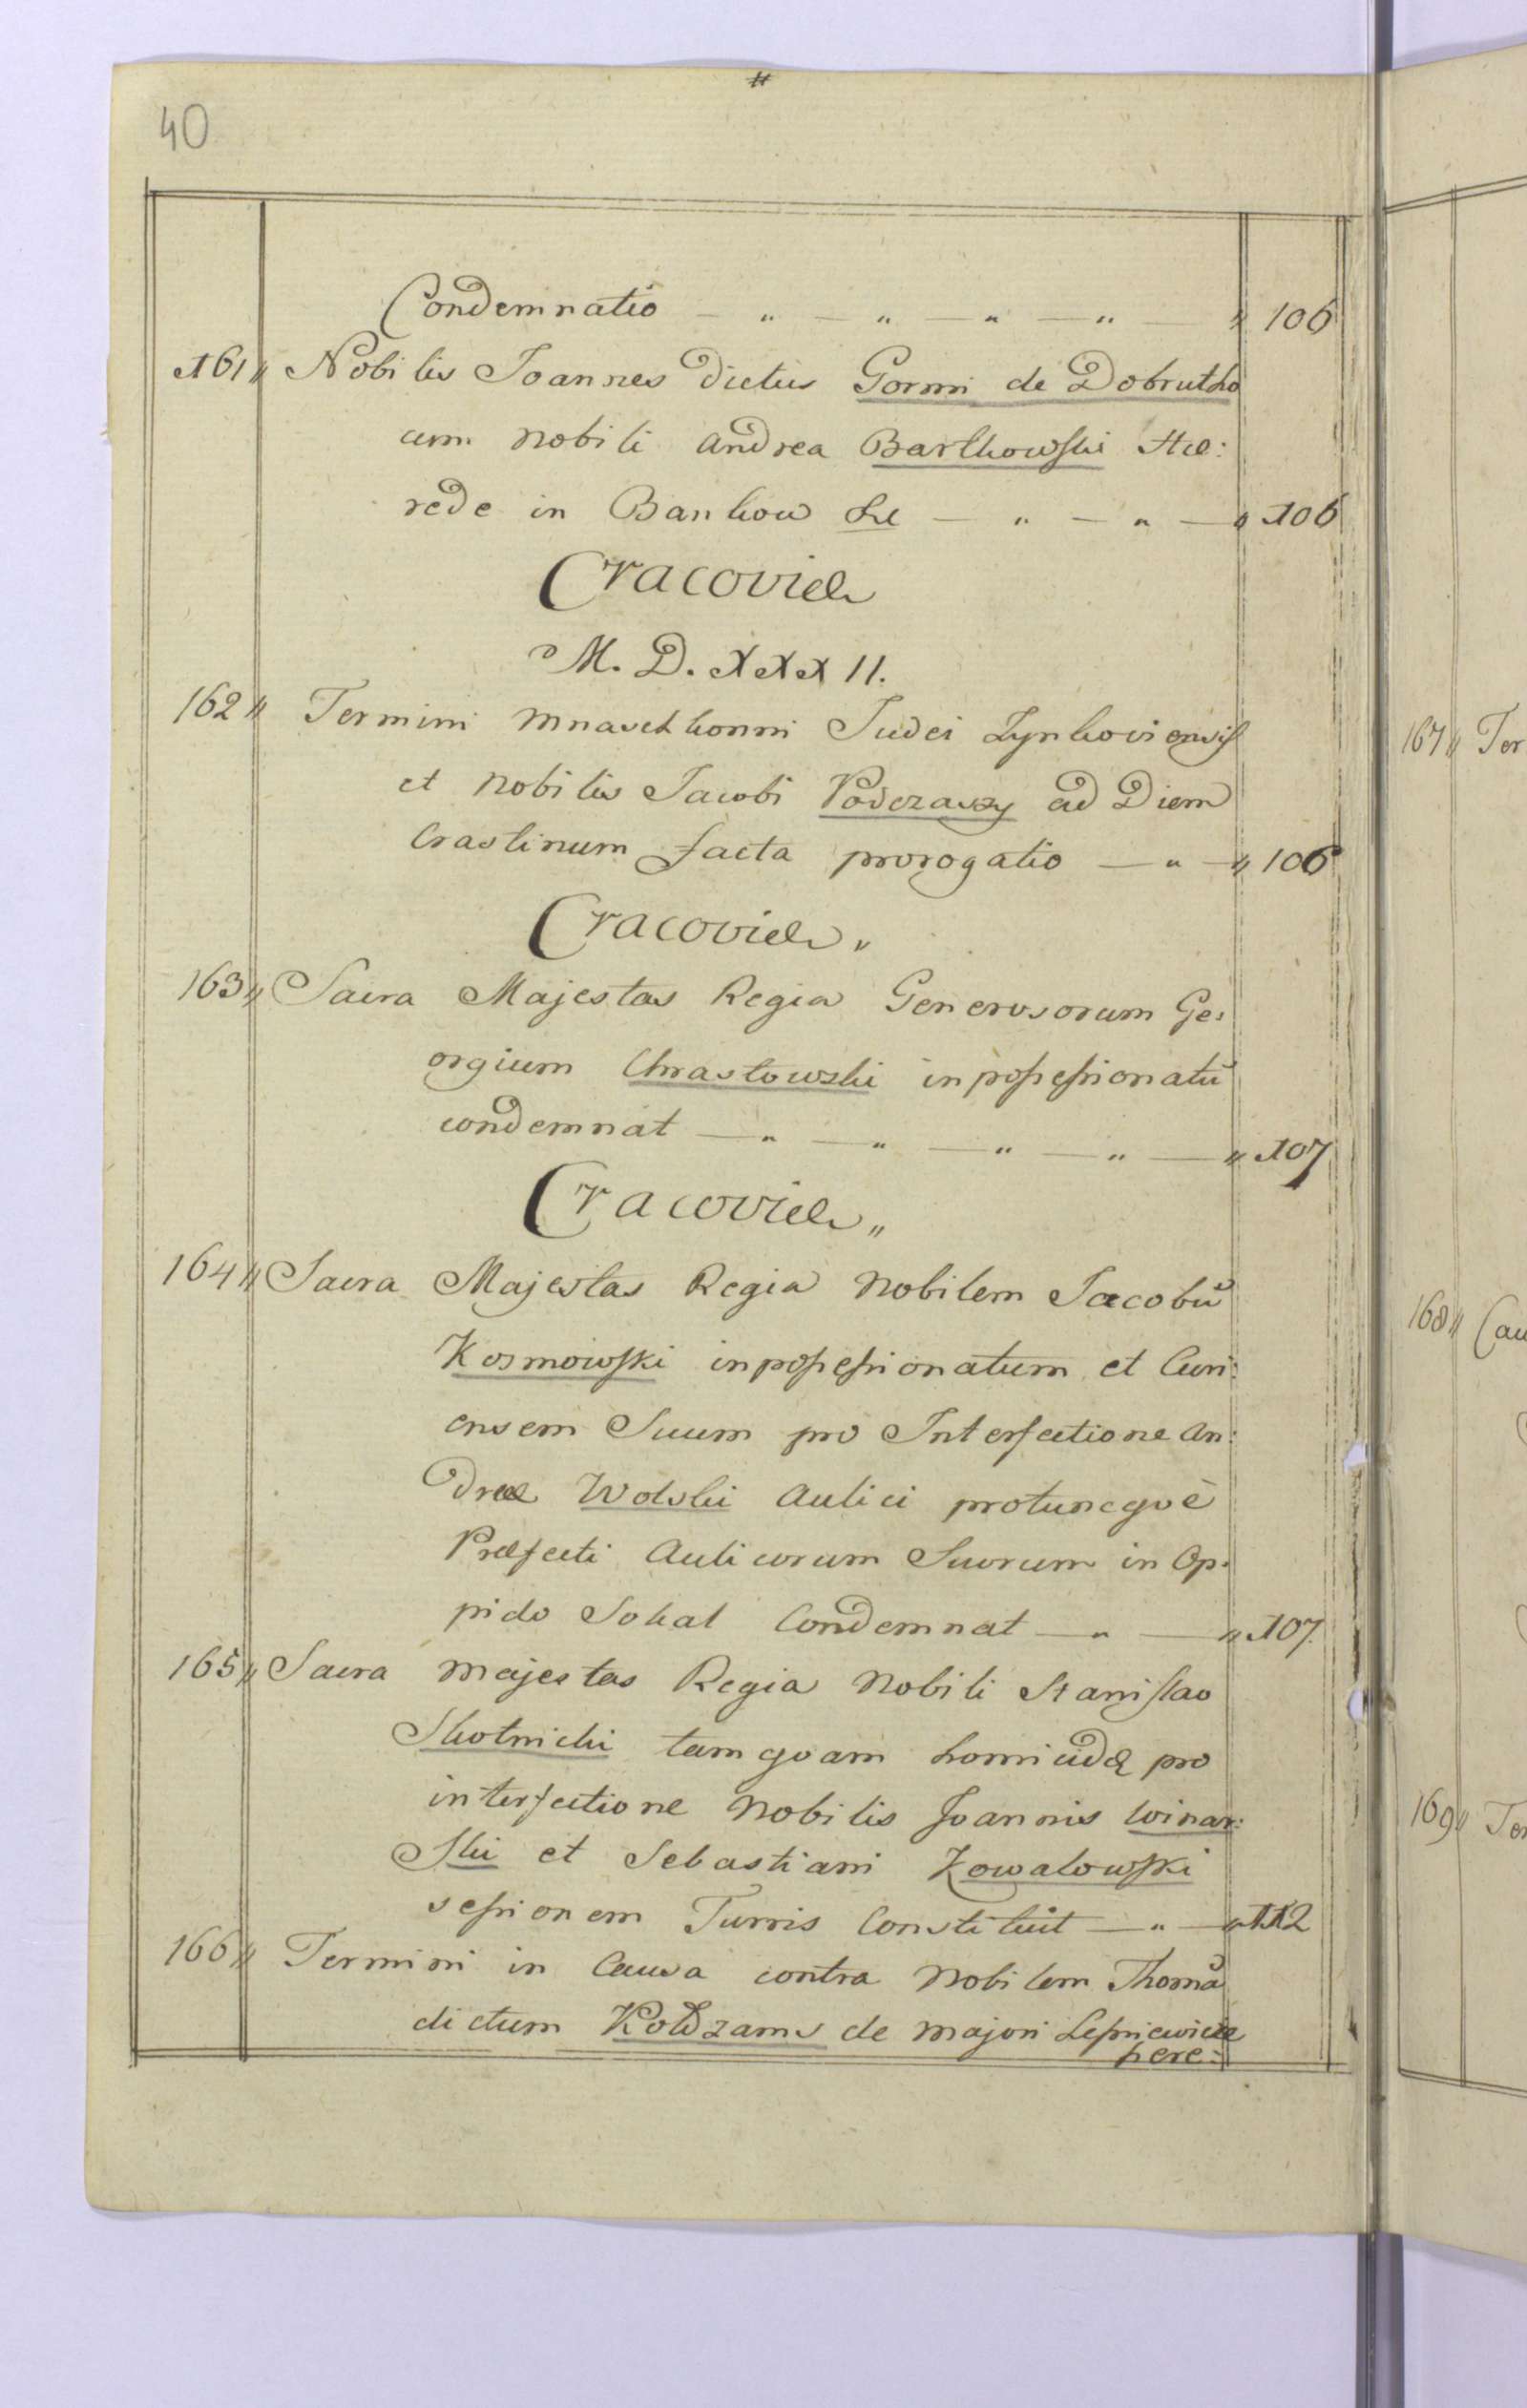 40
Condemnatio — " — " — " — " — " 106
161" Nobilis Joannes dictus Gormi de Dobrutho
cum Nobili Andrea Barthowski Hæ:
rede in Bankow &c — " — " — " 106
Cracoviæ
M. D. XXX II.
162" Termini Mnaschkonni Judei Zynkoviensis
et Nobilis Jacobi Podczaszy ad Diem
Crastinum facta prorogatio — " — " 106
Cracoviæ"
163" Sacra Majestas Regia Generosorum Ge:
orgium Chrastowski inpossessionatū
condemnat — " — " — " — " — " 107
Cracoviæ"
164" Sacra Majestas Regia Nobilem Jacobū
Kosmowski inpossessionatum et Curi:
ensem Suum pro Interfectione An:
dreæ Wolski Aulici protuncqvè
Præfecti Aulicorum Suorum in Op:
pido Sokal Condemnat — " — " 107.
165" Sacra Majestas Regia Nobili Stanislao
Skotnicki tamqvam homicidæ pro
interfectione Nobilis Joannis Winar:
Ski et Sebastiani Kowalowski
sessionem Turris Constituit — " — " 112
166" Termini in Causa contra Nobilem Thomā
dictum Koldzams de Majori Lesniewicze
here:
167" Ter
168" Cau
169" Ter